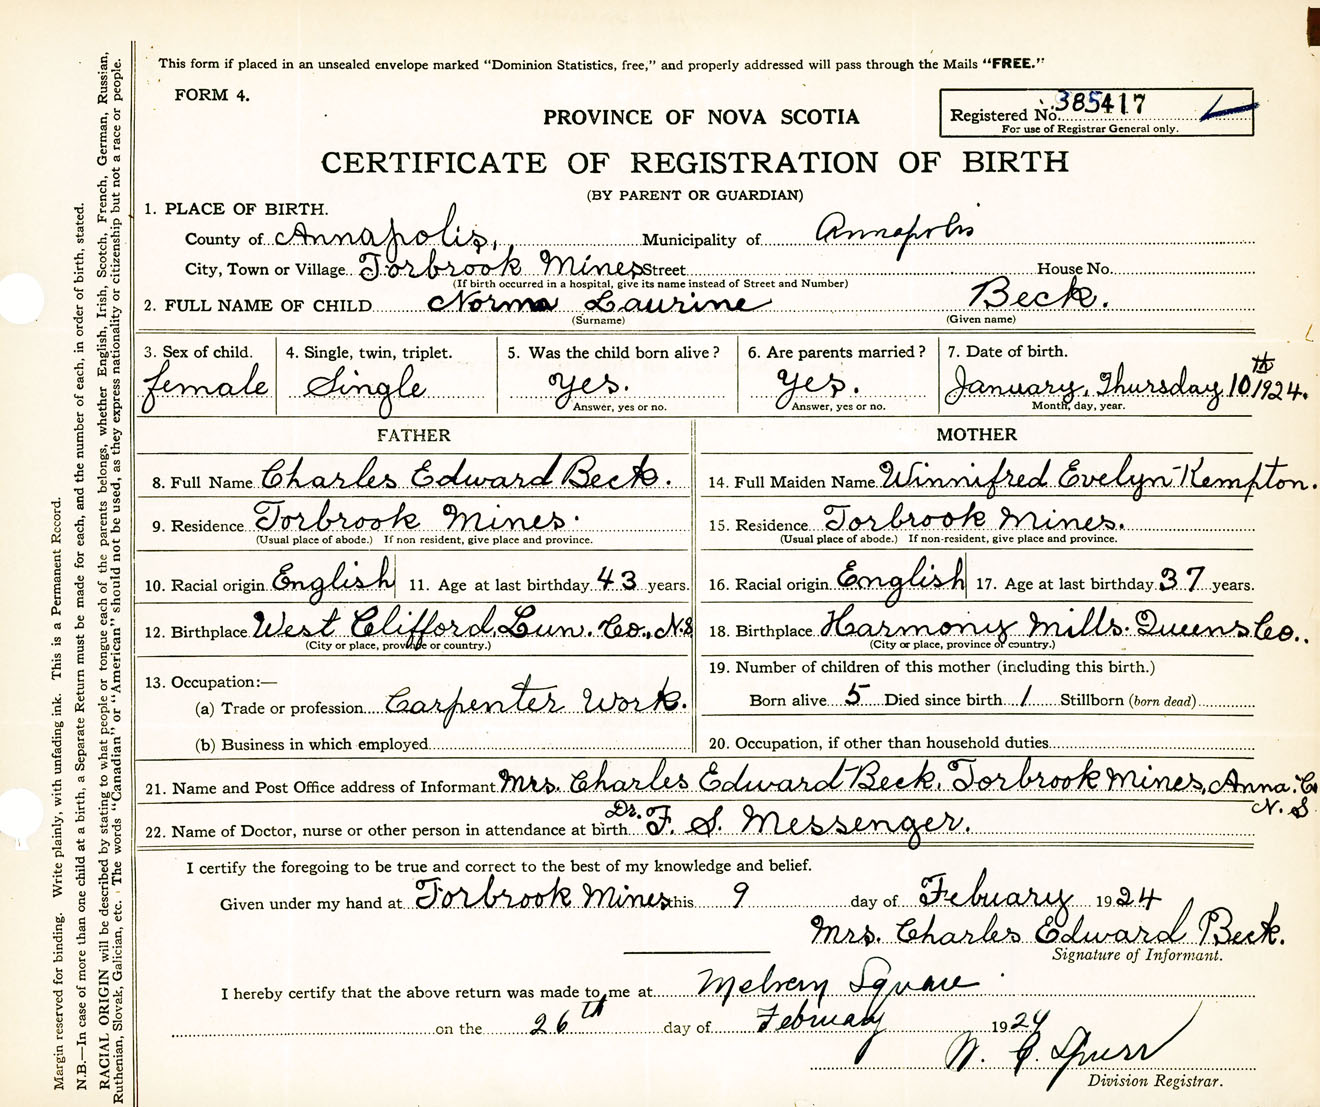 This form if placed in an unsealed envelope marked "Dominion Statistics, free," and properly addressed will pass through the Mails "FREE."
FORM 4.
PROVINCE OF NOVA SCOTIA
Registered No. 385417
For use of Registrar General only.
CERTIFICATE OF REGISTRATION OF BIRTH
(BY PARENT OR GUARDIAN)
1. PLACE OF BIRTH.
County of Annapolis, Municipality of Annapolis
City, Town or Village Torbrook Mines Street House No.
(If birth occurred in a hospital, give its name instead of Street and Number)
2. FULL NAME OF CHILD Norma Laurine Beck.
(Surname) (Given name)
3. Sex of child. 4. Single, twin, triplet. 5. Was the child born alive? 6. Are parents married? 7. Date of birth.
female Single yes. yes. January, Thursday 10th 1924.
Answer, yes or no. Answer, yes or no. Month, day, year.
FATHER MOTHER
8. Full Name Charles Edward Beck. 14. Full Maiden Name Winnifred Evelyn Kempton.
9. Residence Torbrook Mines. 15. Residence Torbrook Mines.
(Usual place of abode.) If non resident, give place and province. (Usual place of abode.) If non-resident, give place and province.
10. Racial origin English 11. Age at last birthday 43 years. 16. Racial origin English 17. Age at last birthday 37 years.
12. Birthplace West Clifford, Lun. Co., N.S 18. Birthplace Harmony Mills. Queens Co..
(City or place, province or country.) (City or place, province or country.)
19. Number of children of this mother (including this birth.)
13. Occupation:—
(a) Trade or profession Carpenter Work. Born alive 5 Died since birth 1 Stillborn (born dead)
(b) Business in which employed 20. Occupation, if other than household duties
21. Name and Post Office address of Informant Mrs. Charles Edward Beck, Torbrook Mines, Anna. Co
N. S
22. Name of Doctor, nurse or other person in attendance at birth Dr. F. S. Messenger.
I certify the foregoing to be true and correct to the best of my knowledge and belief.
Given under my hand at Torbrook Mines this 9 day of Febuary 1924
Mrs. Charles Edward Beck.
Signature of Informant.
I hereby certify that the above return was made to me at Melvern Square
on the 26th day of February 1924
W. C. Spurr
Division Registrar.
Margin reserved for binding. Write plainly, with unfading ink. This is a Permanent Record.
N.B.—In case of more than one child at a birth, a Separate Return must be made for each, and the number of each, in order of birth, stated.
RACIAL ORIGIN will be described by stating to what people or tongue each of the parents belongs, whether English, Irish, Scotch, French, German, Russian,
Ruthenian, Slovak, Galician, etc. The words "Canadian" or "American" should not be used, as they express nationality or citizenship but not a race or people.